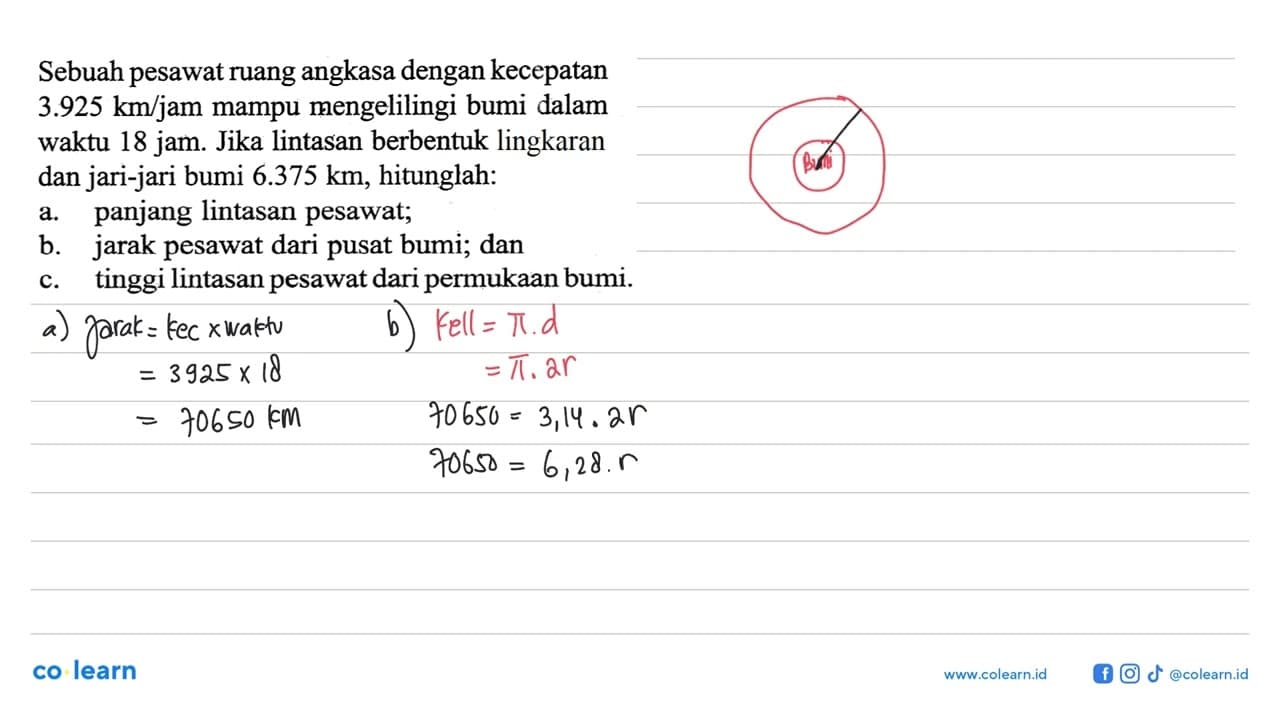 Sebuah pesawat ruang angkasa dengan kecepatan
3.925 km/jam mampu mengelilingi bumi dalam
waktu 18 jam. Jika lintasan berbentuk lingkaran
dan jari-jari bumi 6.375 km, hitunglah:
a. panjang lintasan pesawat;
b. jarak pesawat dari pusat bumi; dan
c. tinggi lintasan pesawat dari permukaan bumi.
Bumi
a) Jarak = kec x waktu
= 3925 x 18
= 70650 km
b) kell = π.d
= π. 2r
70650 = 3,14 . 2r
70650 = 6,28. r
co learn
www.colearn.id
@colearn.id